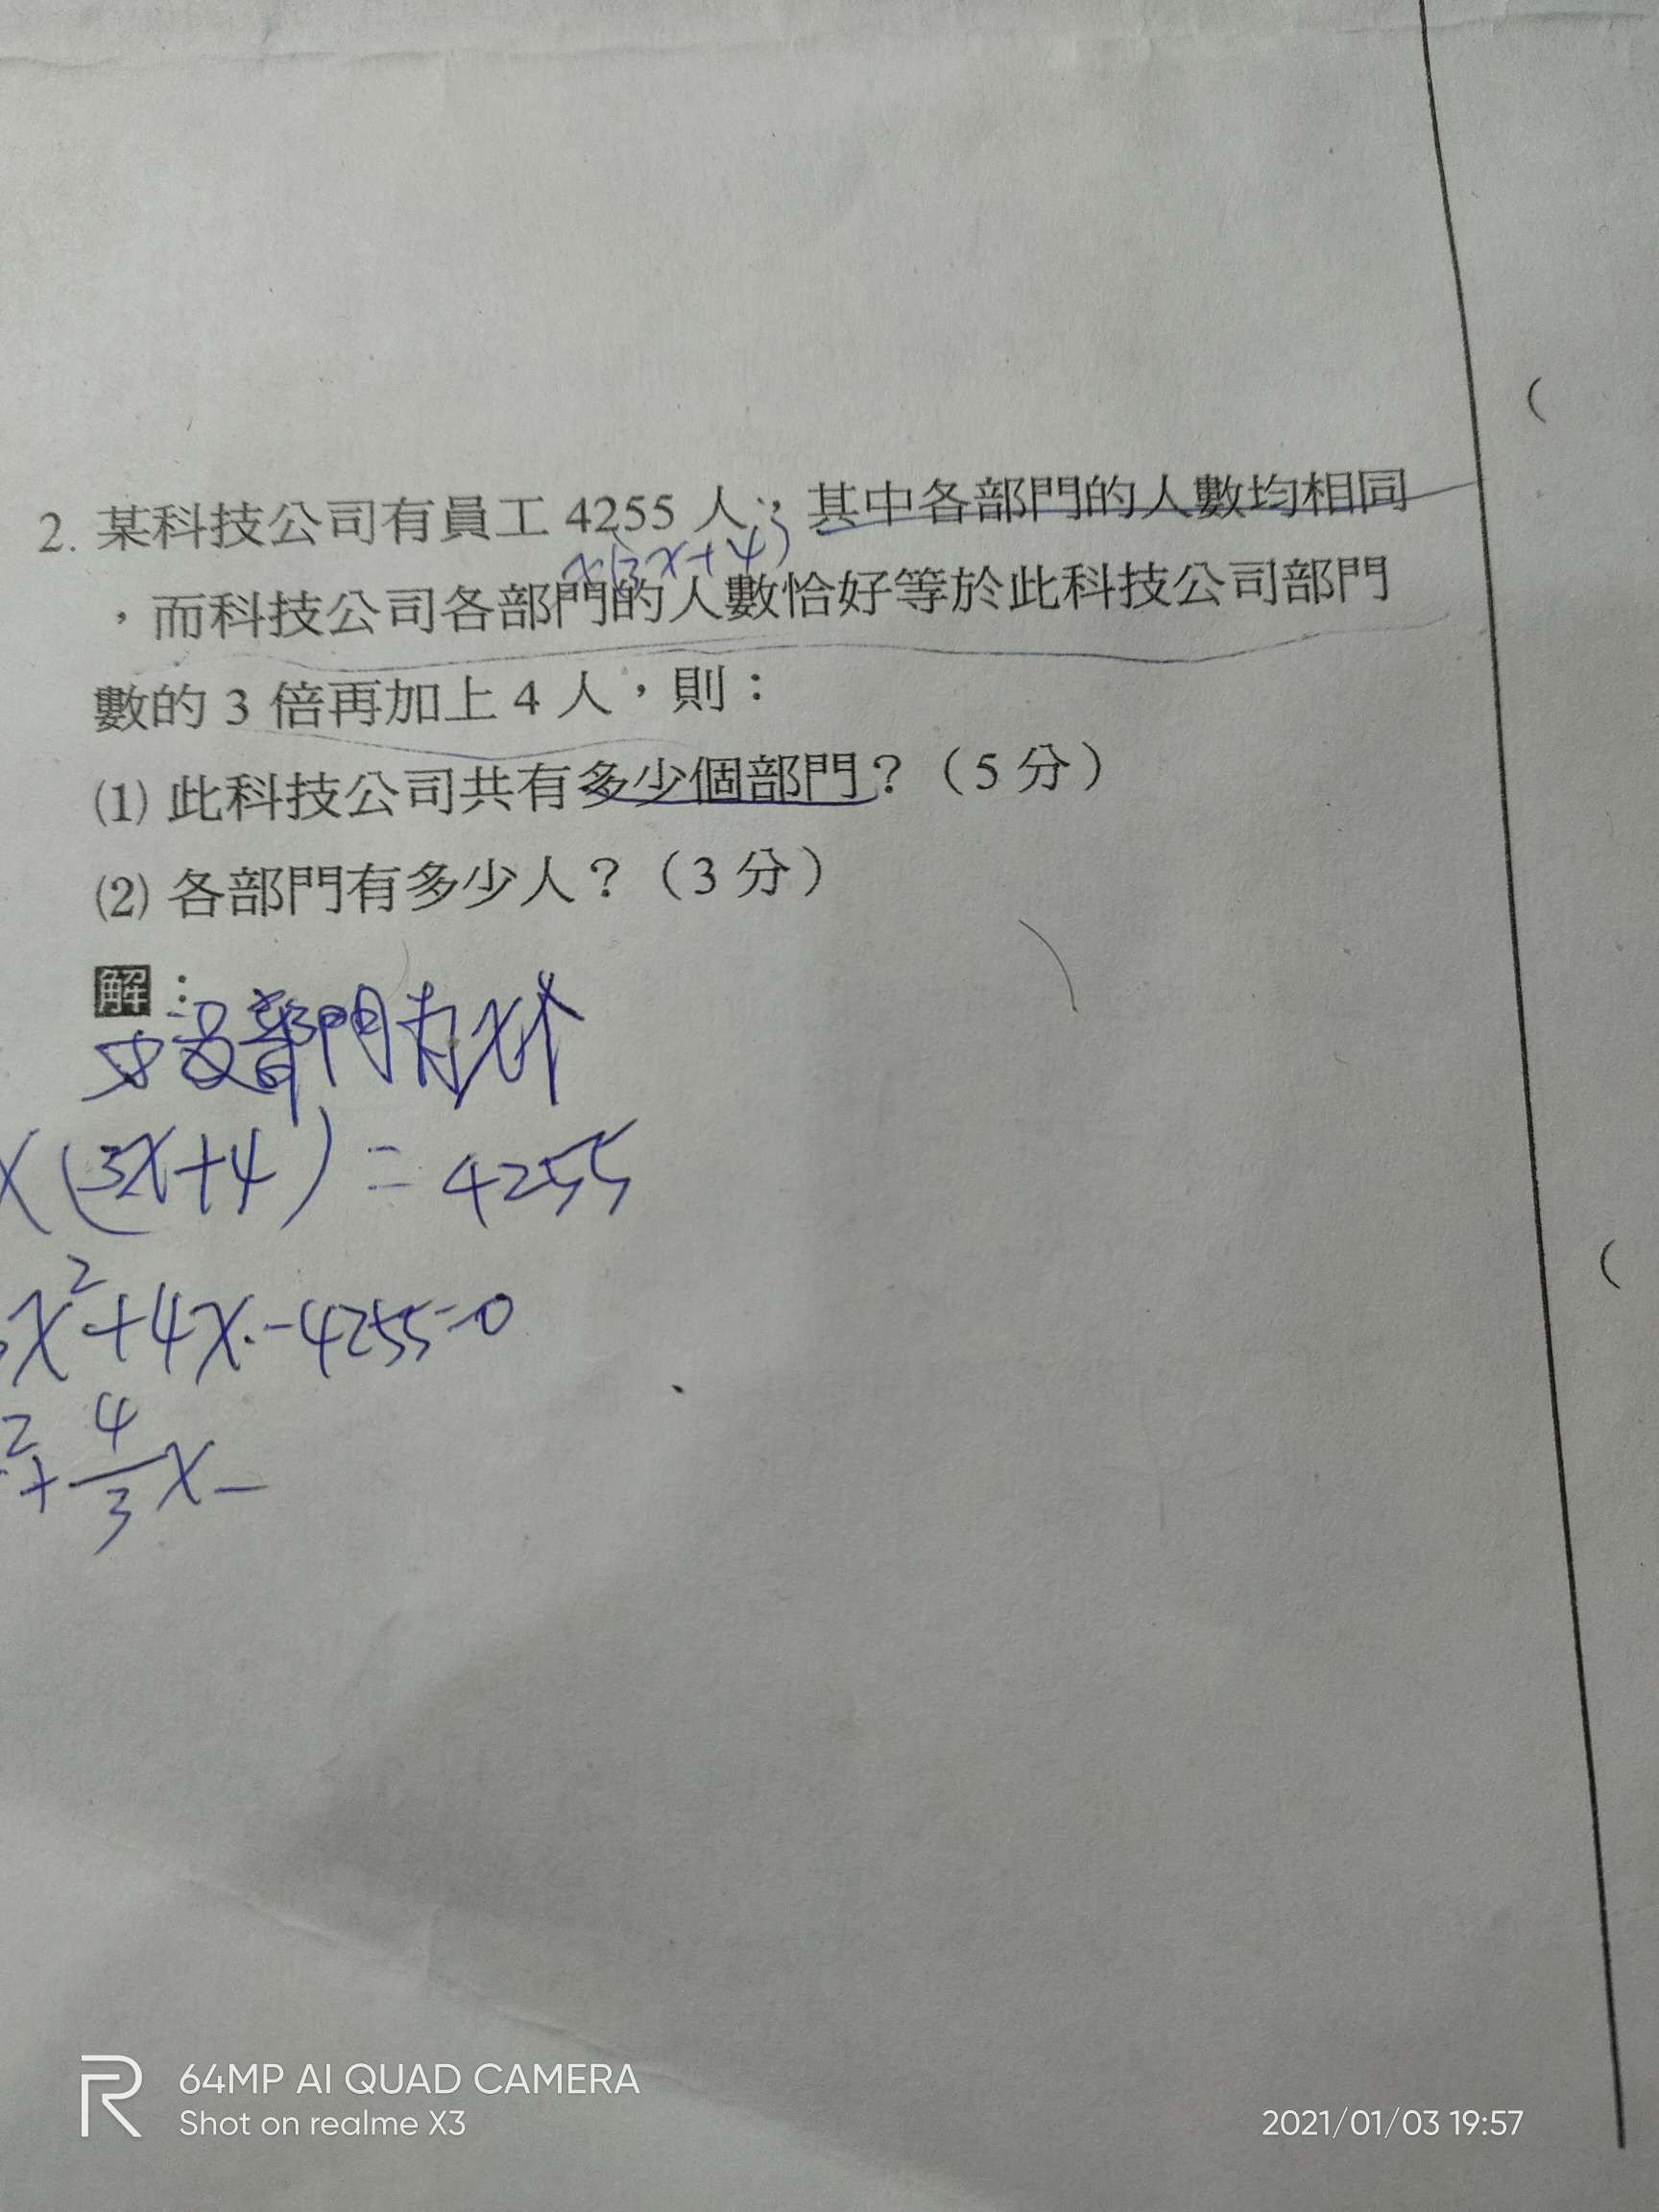 2. 某科技公司有員工 4255 人，其中各部門的人數均相同
x(3x+4)
，而科技公司各部門的人數恰好等於此科技公司部門
數的 3 倍再加上 4 人，則：
(1) 此科技公司共有多少個部門？（5 分）
(2) 各部門有多少人？（3 分）
解：
設部門有x个
x(3x+4) = 4255
x²+4x-4255=0
²+4/3x-
(
(
R
64MP AI QUAD CAMERA
Shot on realme X3
2021/01/03 19:57